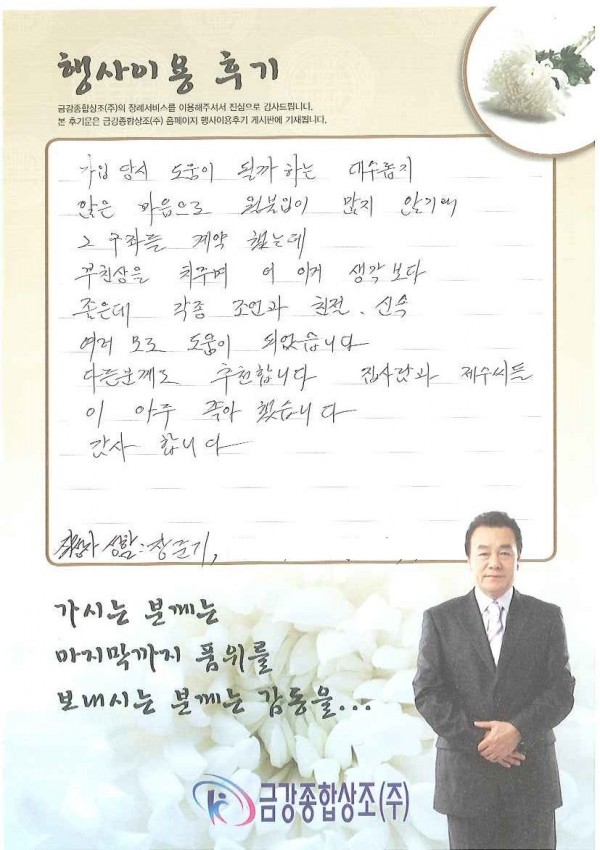 행사이용 후기
금강종합상조(주)의 장례서비스를 이용해주셔서 진심으로 감사드립니다.
본 후기문은 금강종합상조(주) 홈페이지 행사이용후기 게시판에 기재됩니다.
가입 당시 도움이 될까 하는 대수롭지
않은 마음으로 월불입이 많지 않기에
2 구좌를 계약 했는데
부친상을 치루며 어 이게 생각보다
좋은데 각종 조언과 친절, 신속
여러 모로 도움이 되었습니다
다른분께도 추천합니다 집사람과 제수씨들
이 아주 좋아 했습니다
감사 합니다
성함: 장준기,
가시는 분께는
마지막까지 품위를
보내시는 분께는 감동을...
금강종합상조(주)